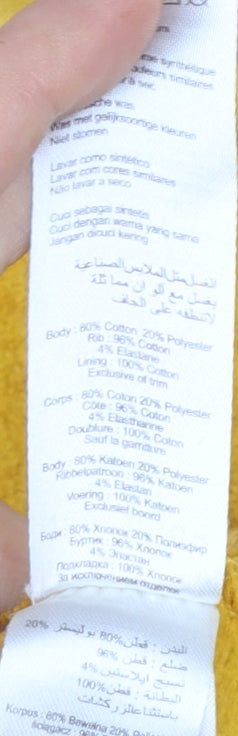 synthétique
similaires
à sec
was
Was met gelijksoortige kleuren
Niet stomen
Lavar como sintético
Lavar com cores similares
Não lavar a seco
Cuci sebagai sintetis
Cuci dengan warna yang sama
Jangan dicuci kering
الغسل مثل الملابس الصناعية
يغسل مع ألوان مماثلة
لاتنظفه على الجاف
Body : 80% Cotton 20% Polyester
Rib : 96% Cotton
4% Elastane
Lining : 100% Cotton
Exclusive of trim
Corps : 80% Coton 20% Polyester
Côte : 96% Coton
4% Elasthanne
Doublure : 100% Coton
Sauf la garniture
Body : 80% Katoen 20% Polyester
Ribbelpatroon : 96% Katoen
4% Elastan
Voering : 100% Katoen
Exclusief boord
Боди : 80% Хлопок 20% Полиэфир
Буртик : 96% Хлопок
4% Эластан
Подкладка : 100% Хлопок
За исключением отделок
البدن : قطن 80% بوليستر 20%
ضلع : قطن 96%
نسيج ايلاستين 4%
البطانة : قطن 100%
باستثناء الزركشات
Korpus : 80% Bawełna 20%
96%